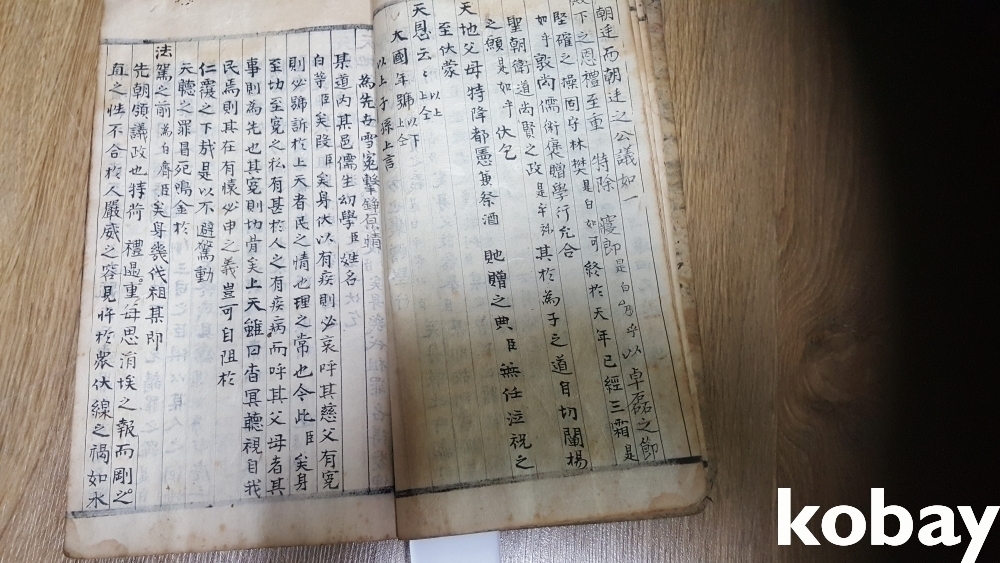 朝廷而朝廷之公議如一
殿下之恩禮至重 特除 寢郎是白乎乎以卓磊之節
堅確之操固守林樊是白如可終於天年已經三霜是
如乎敦尚儒術褒贈學行允合
聖朝衛道尚賢之政是乎旀其於爲子之道自切闡揚
之願是如乎 伏乞
天地父母特降都憲兼祭酒 貤贈之典臣無任泣祝之
至伏蒙
天恩云云以上仝
大國年號以下上仝
以上子孫上言
爲先世雪冤擊錚原情
某道內某邑儒生幼學臣姓名
白等臣矣段臣矣身伏以有疾則必哀呼其慈父有冤
則必號訴於上天者民之情也理之常也今此臣矣身
至切至冤之私有甚於人之有疾病而呼其父母者其
事則爲先也其冤則切骨矣上天雖曰杳冥聽視自我
民焉則其在有懷必申之義豈可自阻於
仁覆之下哉是以不避驚動
天聽之罪冒死鳴金於
法駕之前爲白齊臣矣身幾代祖某即
先朝領議政也特荷 禮遇重每思涓埃之報而剛
直之性不合於人嚴威之容見忤於衆伏線之禍如水
kobay